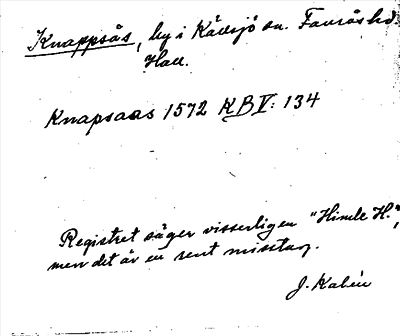 Knappsås, by i Källsjö sn. Faurås hd.
Hall.
Knapsaas 1572 KB V: 134
Registret säger visserligen "Himle H.",
men det är en sent misstag.
J. Kalén